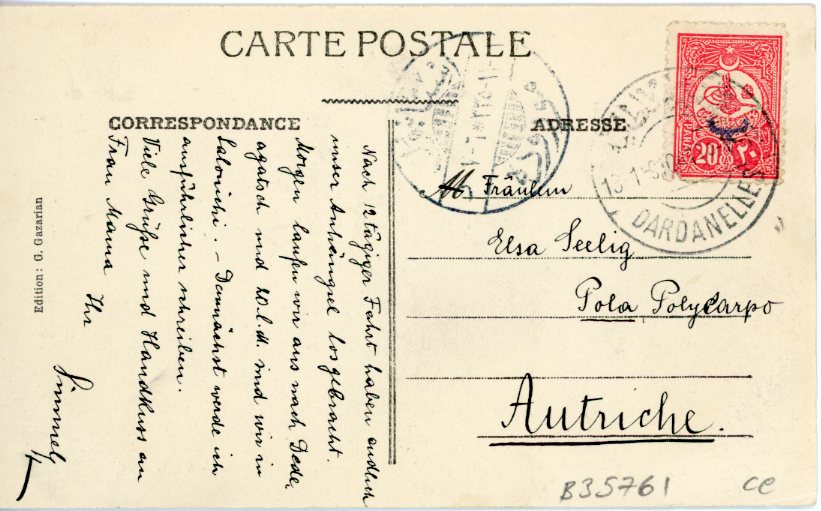 CARTE POSTALE
CORRESPONDANCE
ADRESSE
Nach 12 tägiger Fahrt haben endlich
unser Anhängsel losgebracht.
Morgen laufen wir aus nach Dede
agatsch und 20. l. M. sind wir in
Salonichi. – Demnächst werde ich
ausführlicher schreiben.
Viele Grüße und Handkuss an
Frau Mama Ihr
Fräulein
Elsa Seelig
Pola Polycarpo
Autriche.
20 ٢٠
DARDANELLES
Edition: G. Gazarian
B35761
ce